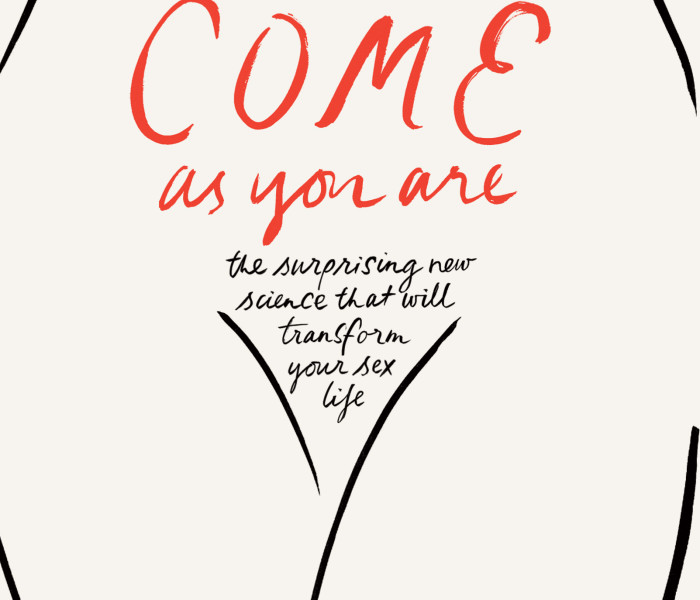 COME
as you are
the surprising new
science that will
transform
your sex
life